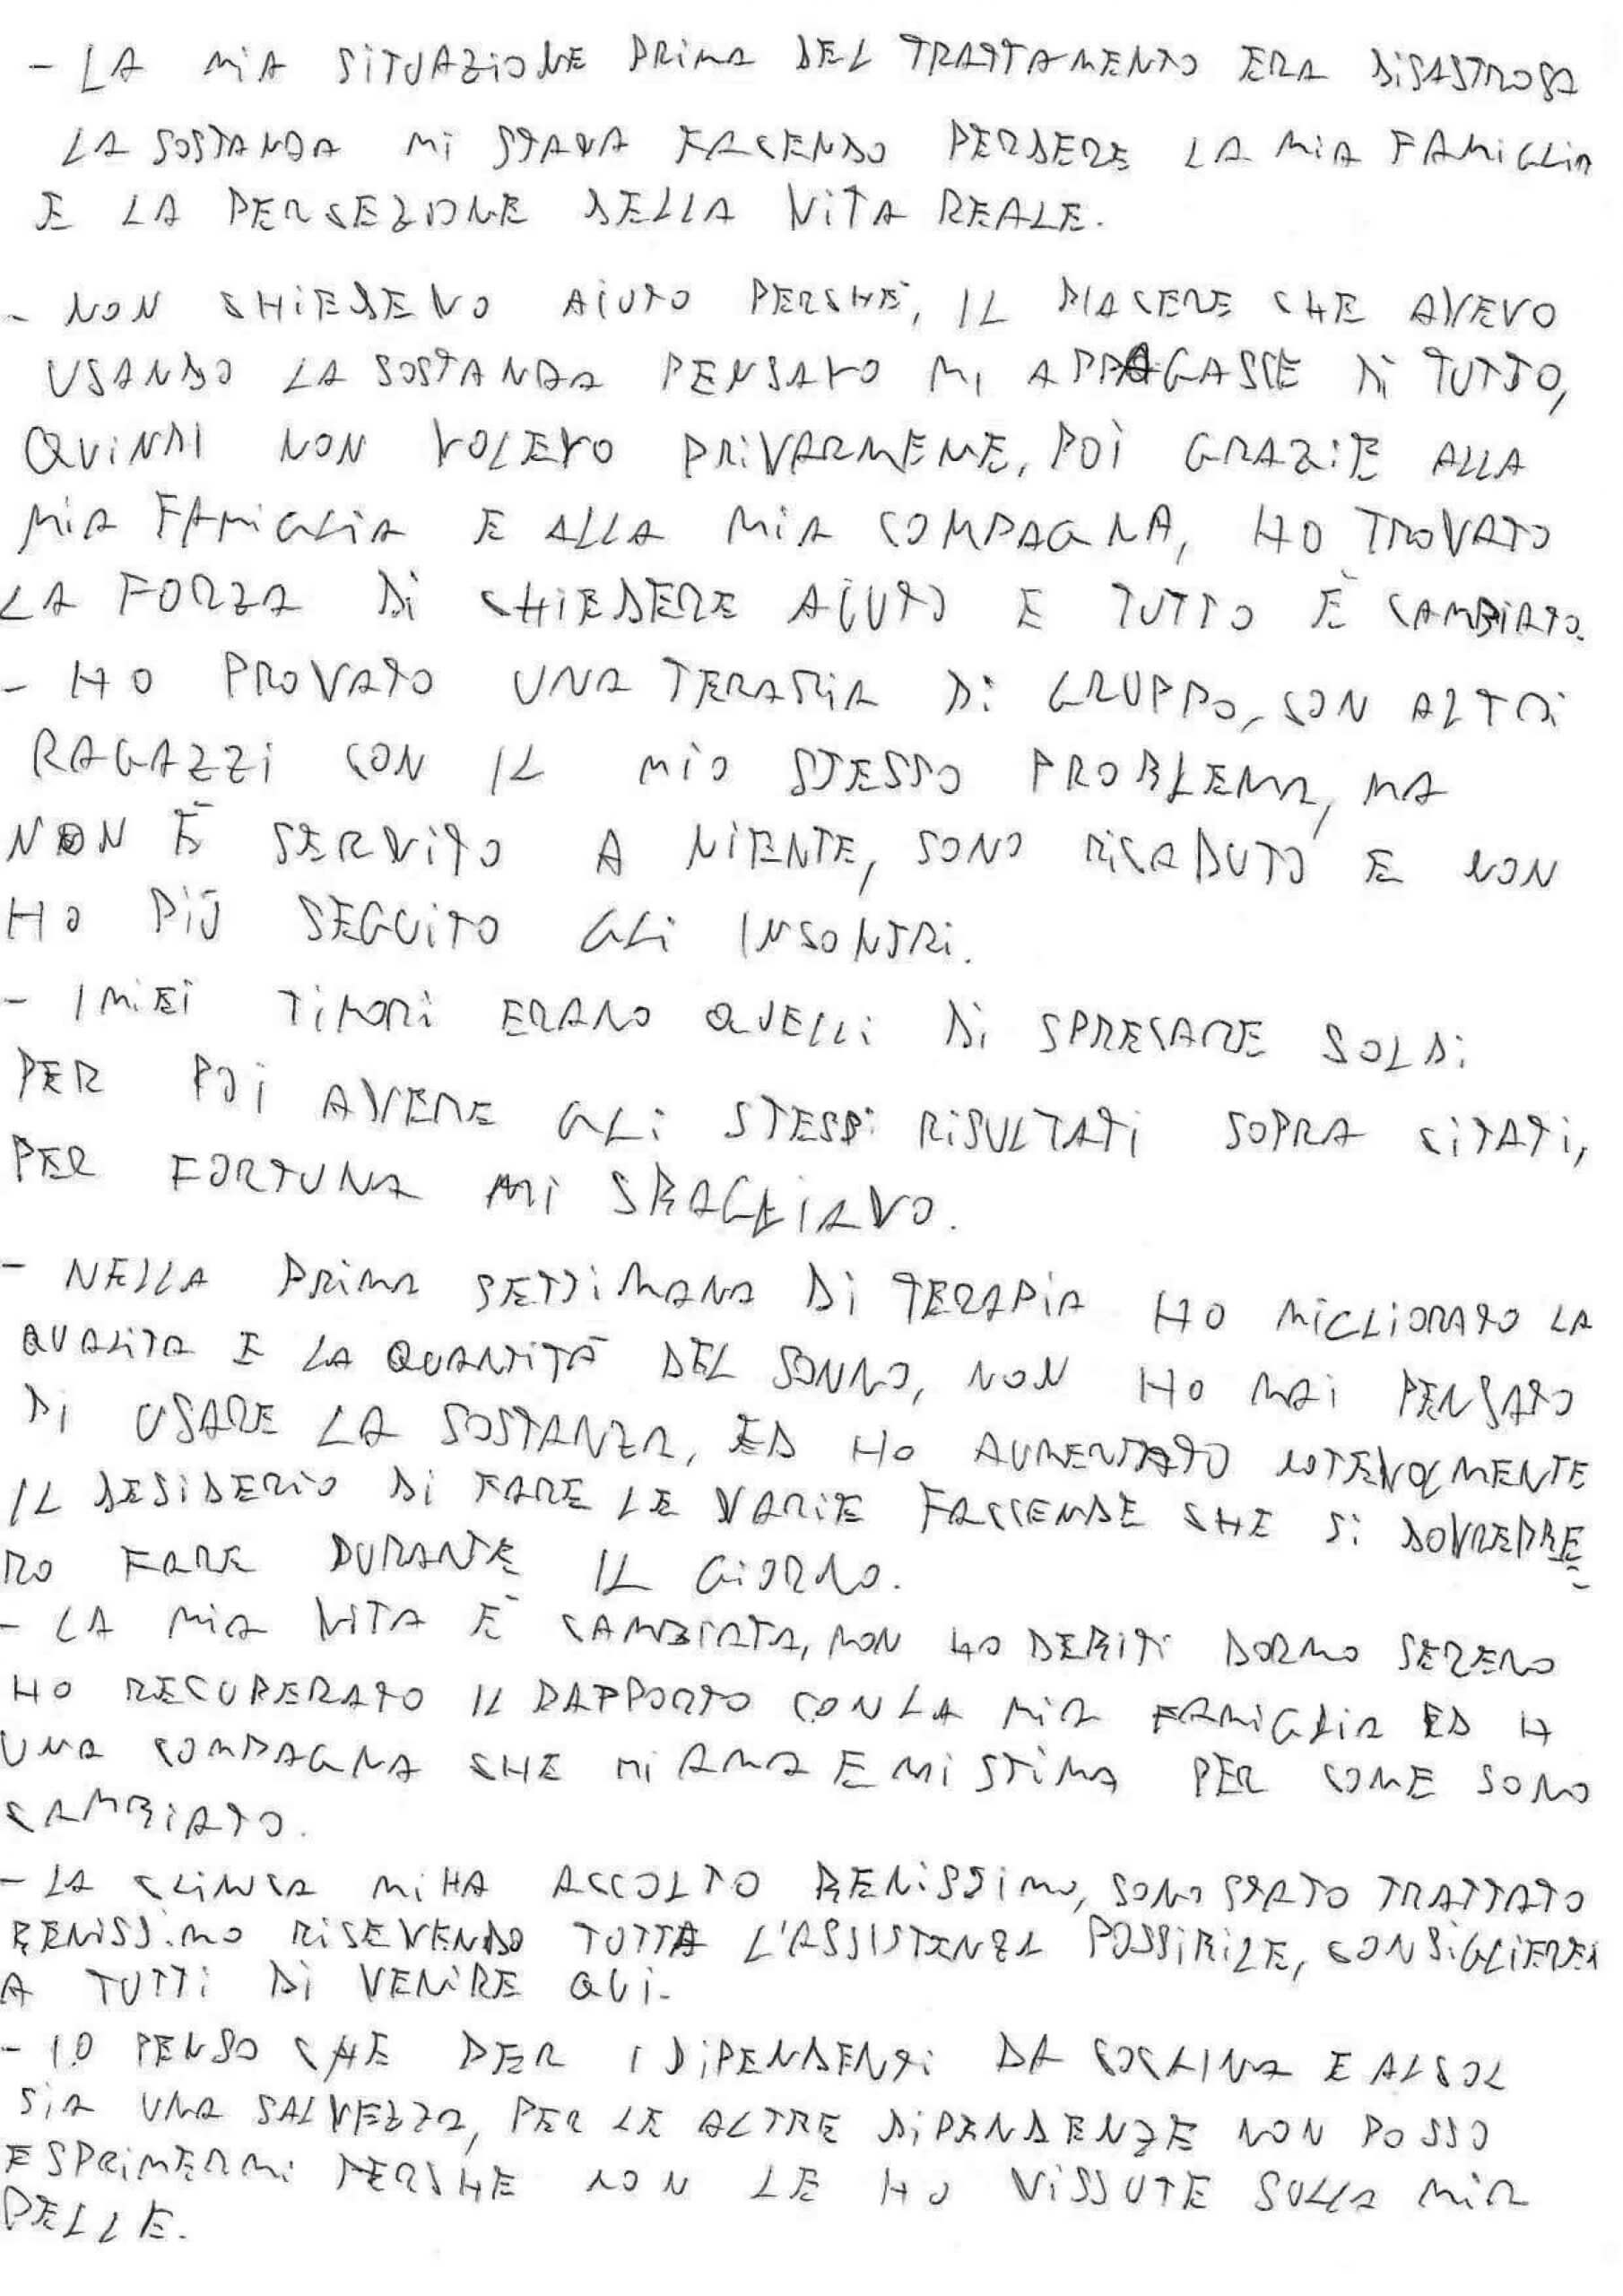 - LA MIA SITUAZIONE PRIMA DEL TRATTAMENTO ERA DISASTROSA
LA SOSTANZA MI STAVA FACENDO PERDERE LA MIA FAMIGLIA
E LA PERCEZIONE DELLA VITA REALE.
- NON CHIEDEVO AIUTO PERCHÈ, IL PIACERE CHE AVEVO
USANDO LA SOSTANZA PENSAVO MI APPAGASSE DI TUTTO,
QUINDI NON VOLEVO PRIVARMENE, POI GRAZIE ALLA
MIA FAMIGLIA E ALLA MIA COMPAGNA, HO TROVATO
LA FORZA DI CHIEDERE AIUTO E TUTTO È CAMBIATO.
- HO PROVATO UNA TERAPIA DI GRUPPO, CON ALTRI
RAGAZZI CON IL MIO STESSO PROBLEMA, MA
NON È SERVITO A NIENTE, SONO RICADUTO E NON
HO PIÙ SEGUITO GLI INCONTRI.
- I MIEI TIMORI ERANO QUELLI DI SPRECARE SOLDI
PER POI AVERE GLI STESSI RISULTATI SOPRA CITATI,
PER FORTUNA MI SBAGLIAVO.
- NELLA PRIMA SETTIMANA DI TERAPIA HO MIGLIORATO LA
QUALITA E LA QUANTITÀ DEL SONNO, NON HO MAI PENSATO
DI USARE LA SOSTANZA, ED HO AUMENTATO NOTEVOLMENTE
IL DESIDERIO DI FARE LE VARIE FACCENDE CHE SI DOVREBBE
RO FARE DURANTE IL GIORNO.
- LA MIA VITA È CAMBIATA, NON HO DEBITI DORMO SERENO
HO RECUPERATO IL RAPPORTO CON LA MIA FAMIGLIA ED H
UNA COMPAGNA CHE MI AMA E MI STIMA PER COME SONO
CAMBIATO.
- LA CLINICA MI HA ACCOLTO BENISSIMO, SONO STATO TRATTATO
BENISSIMO RICEVENDO TUTTA L'ASSISTENZA POSSIBILE, CONSIGLIEREI
A TUTTI DI VENIRE QUI.
- IO PENSO CHE PER I DIPENDENTI DA COCAINA E ALCOL
SIA UNA SALVEZZA, PER LE ALTRE DIPENDENZE NON POSSO
ESPRIMERMI PERCHE NON LE HO VISSUTE SULLA MIA
PELLE.